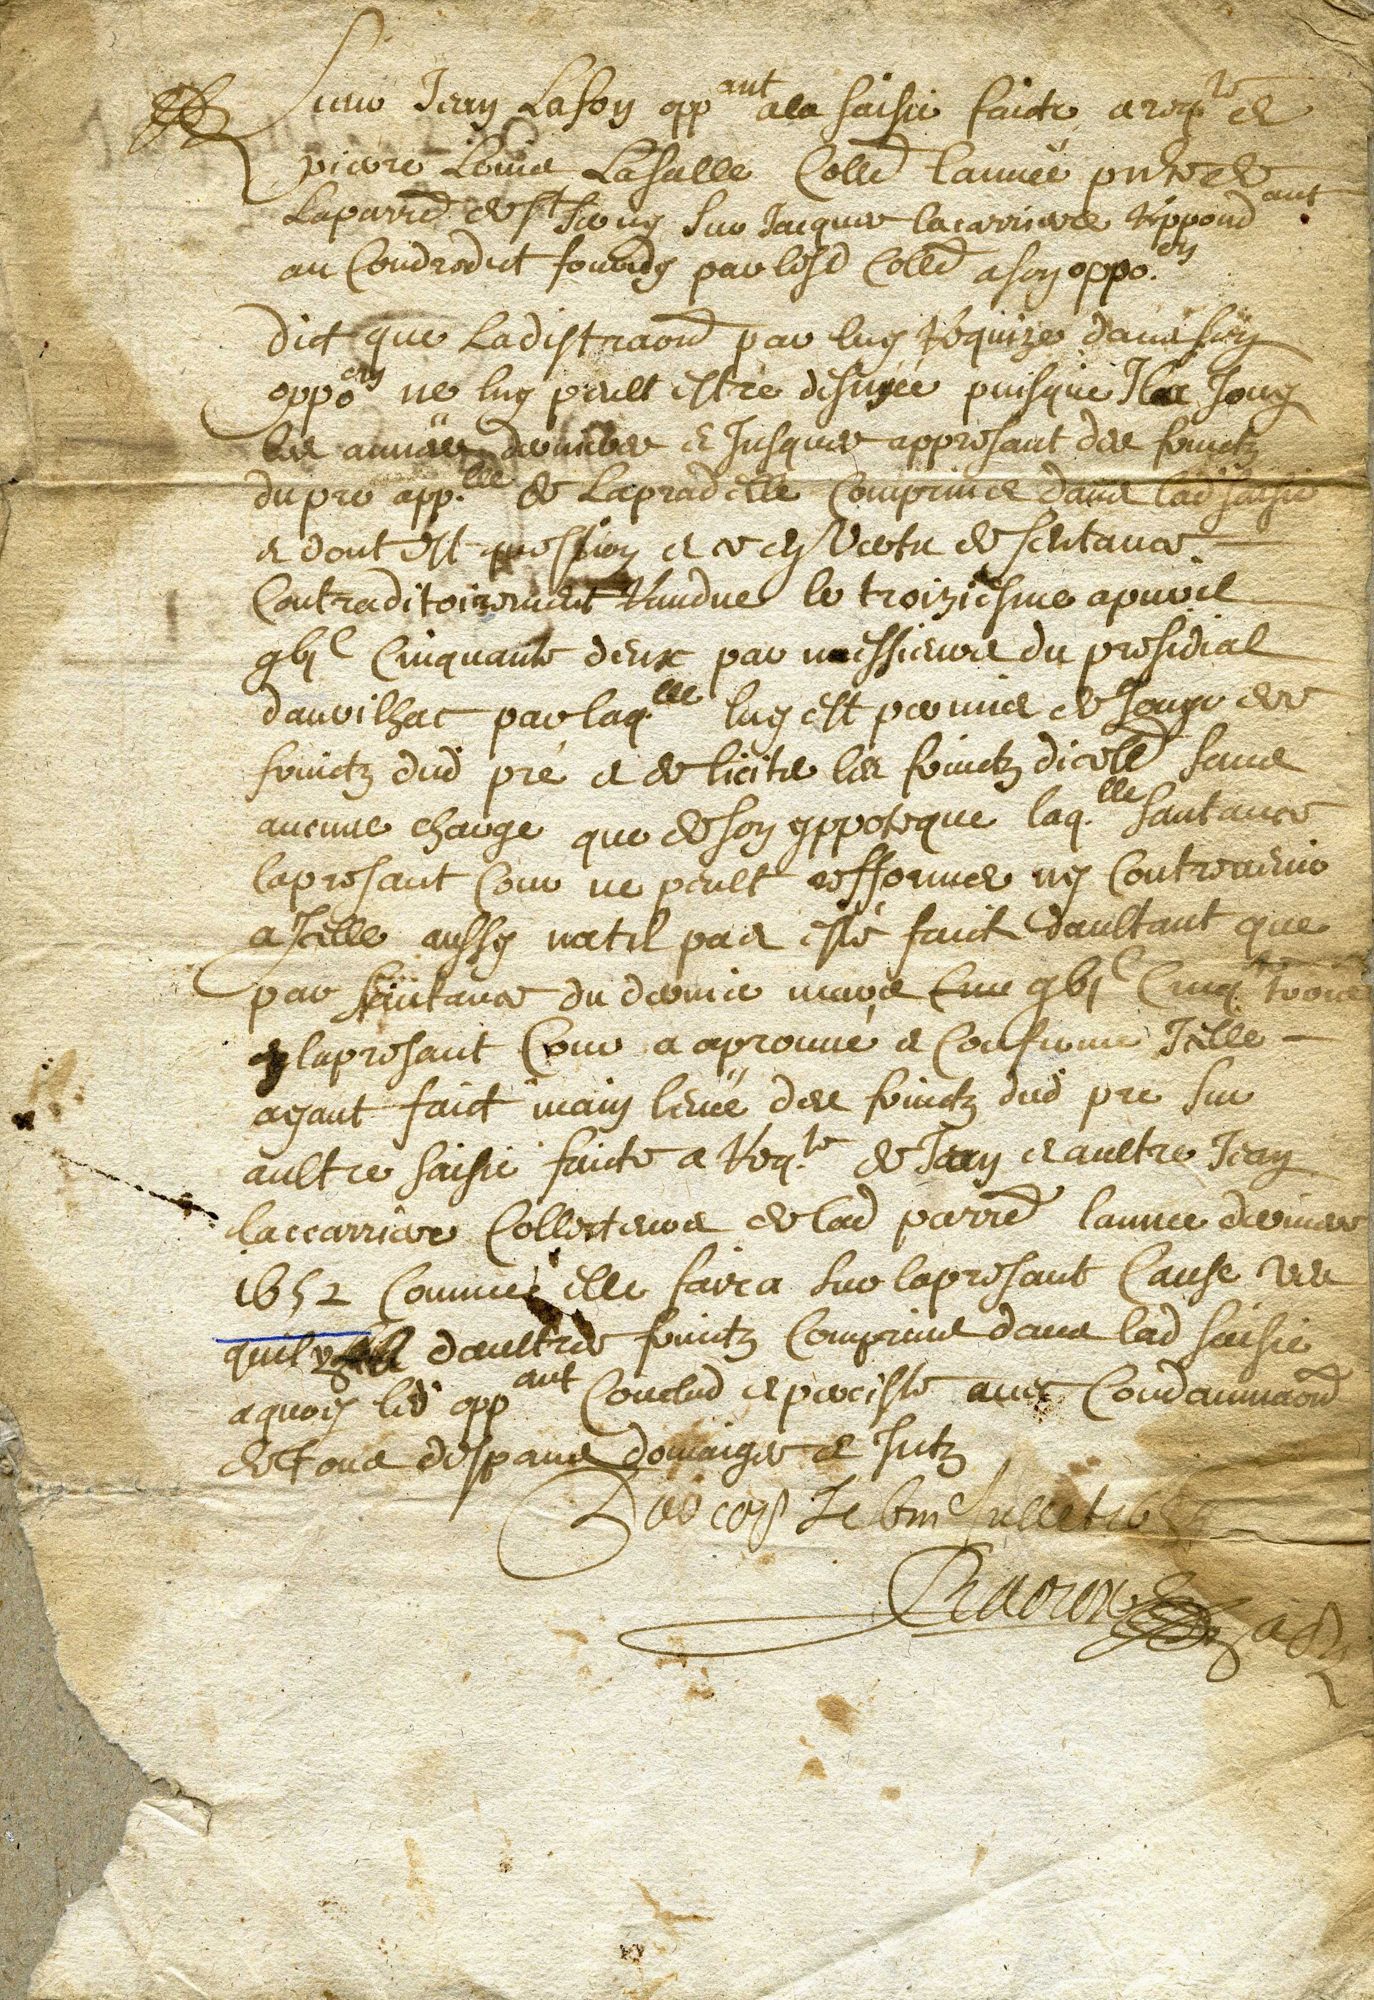 Sieur Jean Lafon opp.ant a la saisie faicte a req.te de
pierre Louis Lasalle Coll. lannée pnte de
Laparr. de St Simon sur Jacques lacarriere Respond ant
au Contredict fourny par lesd Coll. a son oppo.on
Dict que Ladistraon par luy Requize dans son
oppo.on ne luy peult estre desnyée puisque Il a Jouy
les années dernieres e Jusques appresant des fruictz
du pre app.lle de Lapradelle Comprins dans lad saisie
e dont est question e ce en Vertu de sentance
Contraditoirement Randue le troiziesme apvril
gbjc Cinquante deux par messieurs du presidial
daurilhac par laq.lle luy est permis de Jouyr des
fruictz dud pré e de licite les fruictz dicell. sans
aucune charge que de son yppoteque laq.lle santance
lapresant Cour ne peult refformer ny Contrevenir
a Icelle aussy natil pas esté faict daultant que
par santance du dernier mars gbjc Cinq. trois
lapresant Cour a aprouvé e Confirmé Icelle
ayant faict main levée des fruictz dud pre sur
aultre saisie faicte a Req.te de Jean e aultre Jean
laccarriere Collecteurs de lad parr. lannee derniere
1652 Comme elle faira sur lapresant Cause veu
quil daultres fruictz Comprins dans lad saisie
aquoy led opp.ant Conclud e perciste avec Condamnaon
de tous despans domaiges e Intz
le juillet 16